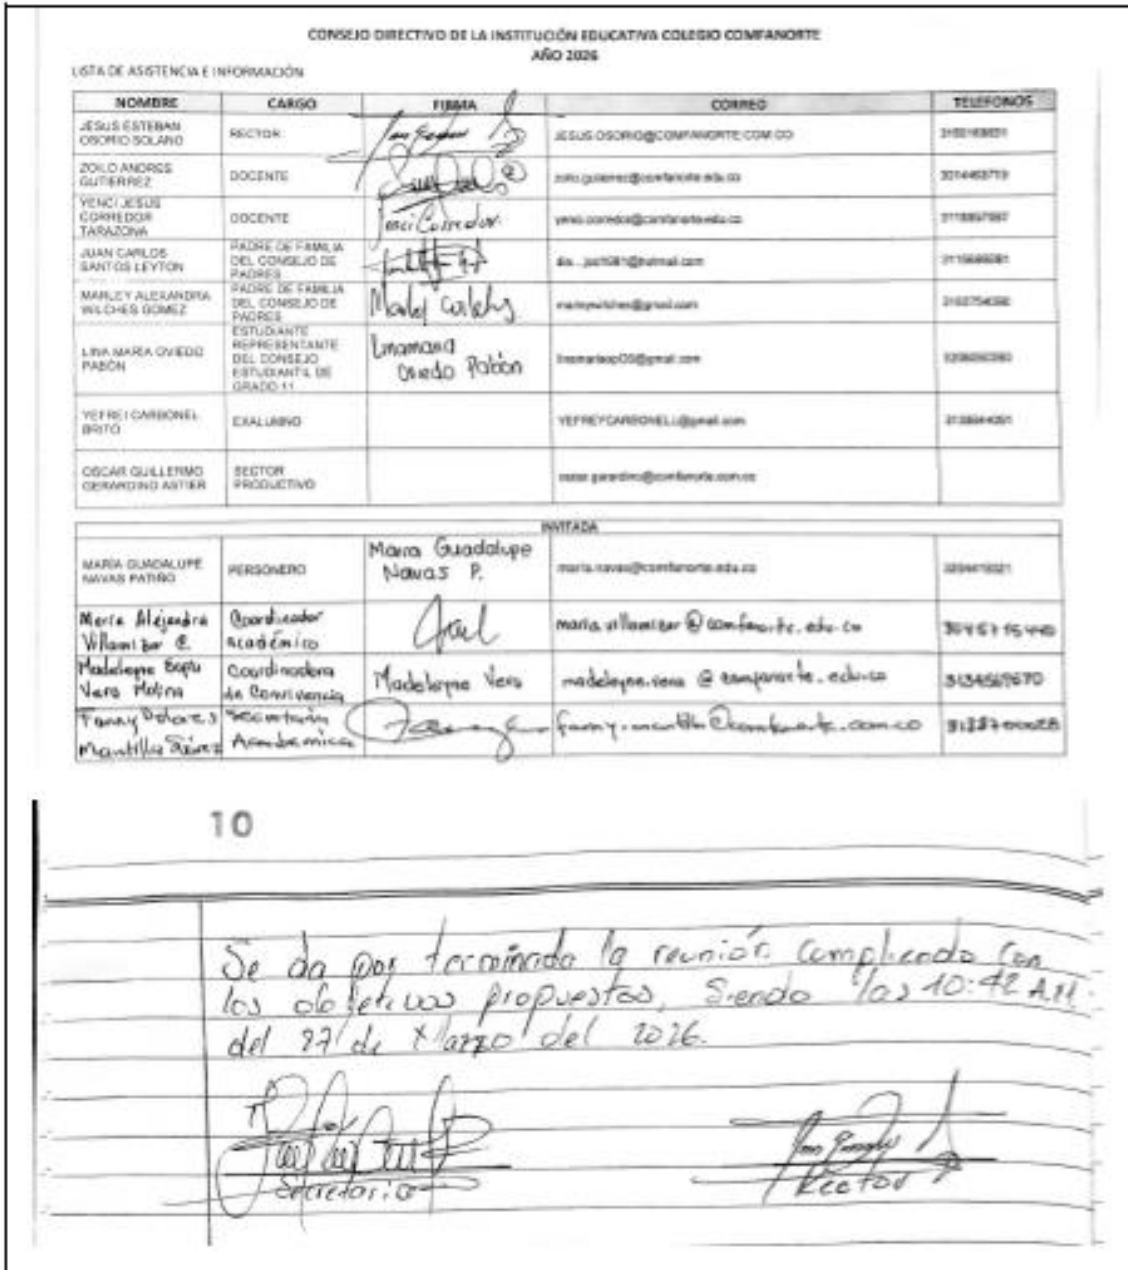 CONSEJO DIRECTIVO DE LA INSTITUCIÓN EDUCATIVA COLEGIO COMFANORTE
AÑO 2026
LISTA DE ASISTENCIA E INFORMACIÓN
NOMBRE CARGO FIRMA CORREO TELEFONOS
JESUS ESTEBAN OSORIO SOLANO RECTOR JESUS.OSORIO@COMFANORTE.COM.CO
ZOILO ANDRES GUTIERREZ DOCENTE zoilo.gutierrez@comfanorte.edu.co
YENCI JESUS CORREDOR TARAZONA DOCENTE Yenci Corredor yenci.corredor@comfanorte.edu.co
JUAN CARLOS SANTOS LEYTON PADRE DE FAMILIA DEL CONSEJO DE PADRES
MARLEY ALEXANDRA WILCHES GOMEZ PADRE DE FAMILIA DEL CONSEJO DE PADRES marleywilches@gmail.com
LINA MARIA OVIEDO PABÓN ESTUDIANTE REPRESENTANTE DEL CONSEJO ESTUDIANTIL DE GRADO 11 Linamaria Oviedo Pabón
YEFREI CARBONEL BRITO EXALUMNO YEFREYCARBONELL@gmail.com
OSCAR GUILLERMO GERARDINO ASTIER SECTOR PRODUCTIVO oscar.gerardino@comfanorte.com.co
INVITADA
MARÍA GUADALUPE NAVAS PATIÑO PERSONERO Maria Guadalupe Navas P. maria.navas@comfanorte.edu.co
Maria Alejandra Villamizar C. Coordinador académico maria.villamizar@comfanorte.edu.co
Madeleyne Vera Molina Coordinadora de Convivencia Madeleyne Vera madeleyne.vera@comfanorte.edu.co 3134569670
Fanny Dolores Mantilla Secretaria Academica fanny.mantilla@comfanorte.com.co
10
Se da por terminada la reunión cumpliendo con
los objetivos propuestos, Siendo las 10:42 A.M.
del 27 de Marzo del 2026.
Secretario Rector